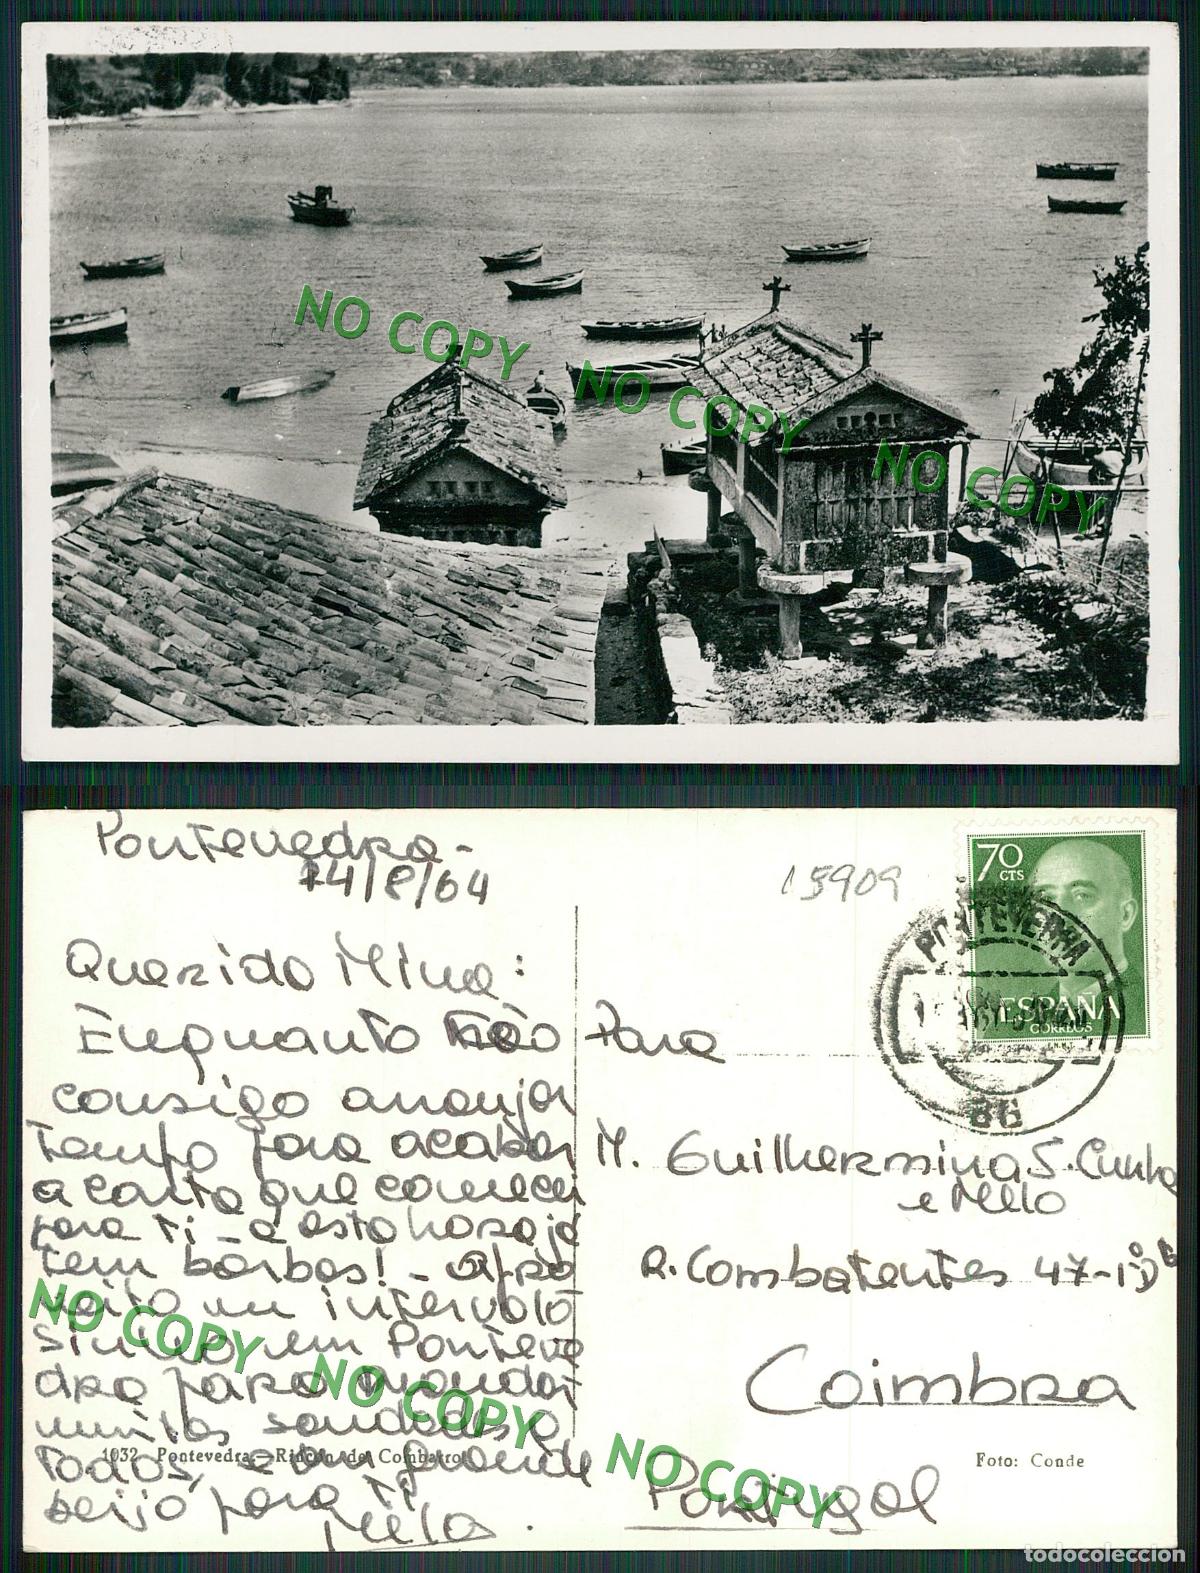 NO COPY
NO COPY
NO COPY
Pontevedra -
14/8/64
15909
70
CTS
PONTEVEDRA
ESPAÑA
CORREOS
86
Querida Mina:
Enquanto não
consigo arranjar
tempo para acabar
a carta que comecei
para ti - a esta hora já
tem barbas! - apro
veito um intervalo
em Ponteve
dra para mandar
muitas saudades a
todos, e um grande
beijo para ti
NO COPY
NO COPY
1032 Pontevedra.—Rincón de Combarro
Para
M. Guilhermina S. Cunha
e Mello
R. Combatentes 47-1º D
Coimbra
Foto: Conde
NO COPY
Portugal
todocoleccion